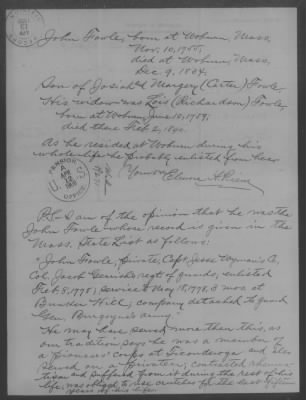 John Fowle, born at Woburn, Mass.
Nov. 10, 1755,
died at Woburn, Mass,
Dec. 9, 1834,
Son of Josiah & Margery (Carter) Fowle,
His widow was Lois (Richardson) Fowle,
born at Woburn, June 18, 1759;
died there Feb 2,
As he resided at Woburn during his
whole life he probably enlisted from here
Yours
PENSION
OFFICE
U.S.
APR
P.S. I am of the opinion that he was the
John Fowle whose record is given in the
Mass. State List as follows:
"John Fowle, private, Capt. Jesse Wyman's Co,
Col. Jacob Gerrish's regt of guards, enlisted
Feb 8, 1778; service to May 18, 1778, 3 mos at
Bunker Hill; company detached to guard
Gen. Burgoyne's army."
He may have served more than this, as
our tradition says he was a member of
a "pioneers" corps at Ticonderoga and also
served on a privateer; contracted rheuma-
tism and suffered from it during the rest of his
life, was obliged to use crutches for the last fifteen
years of his life.